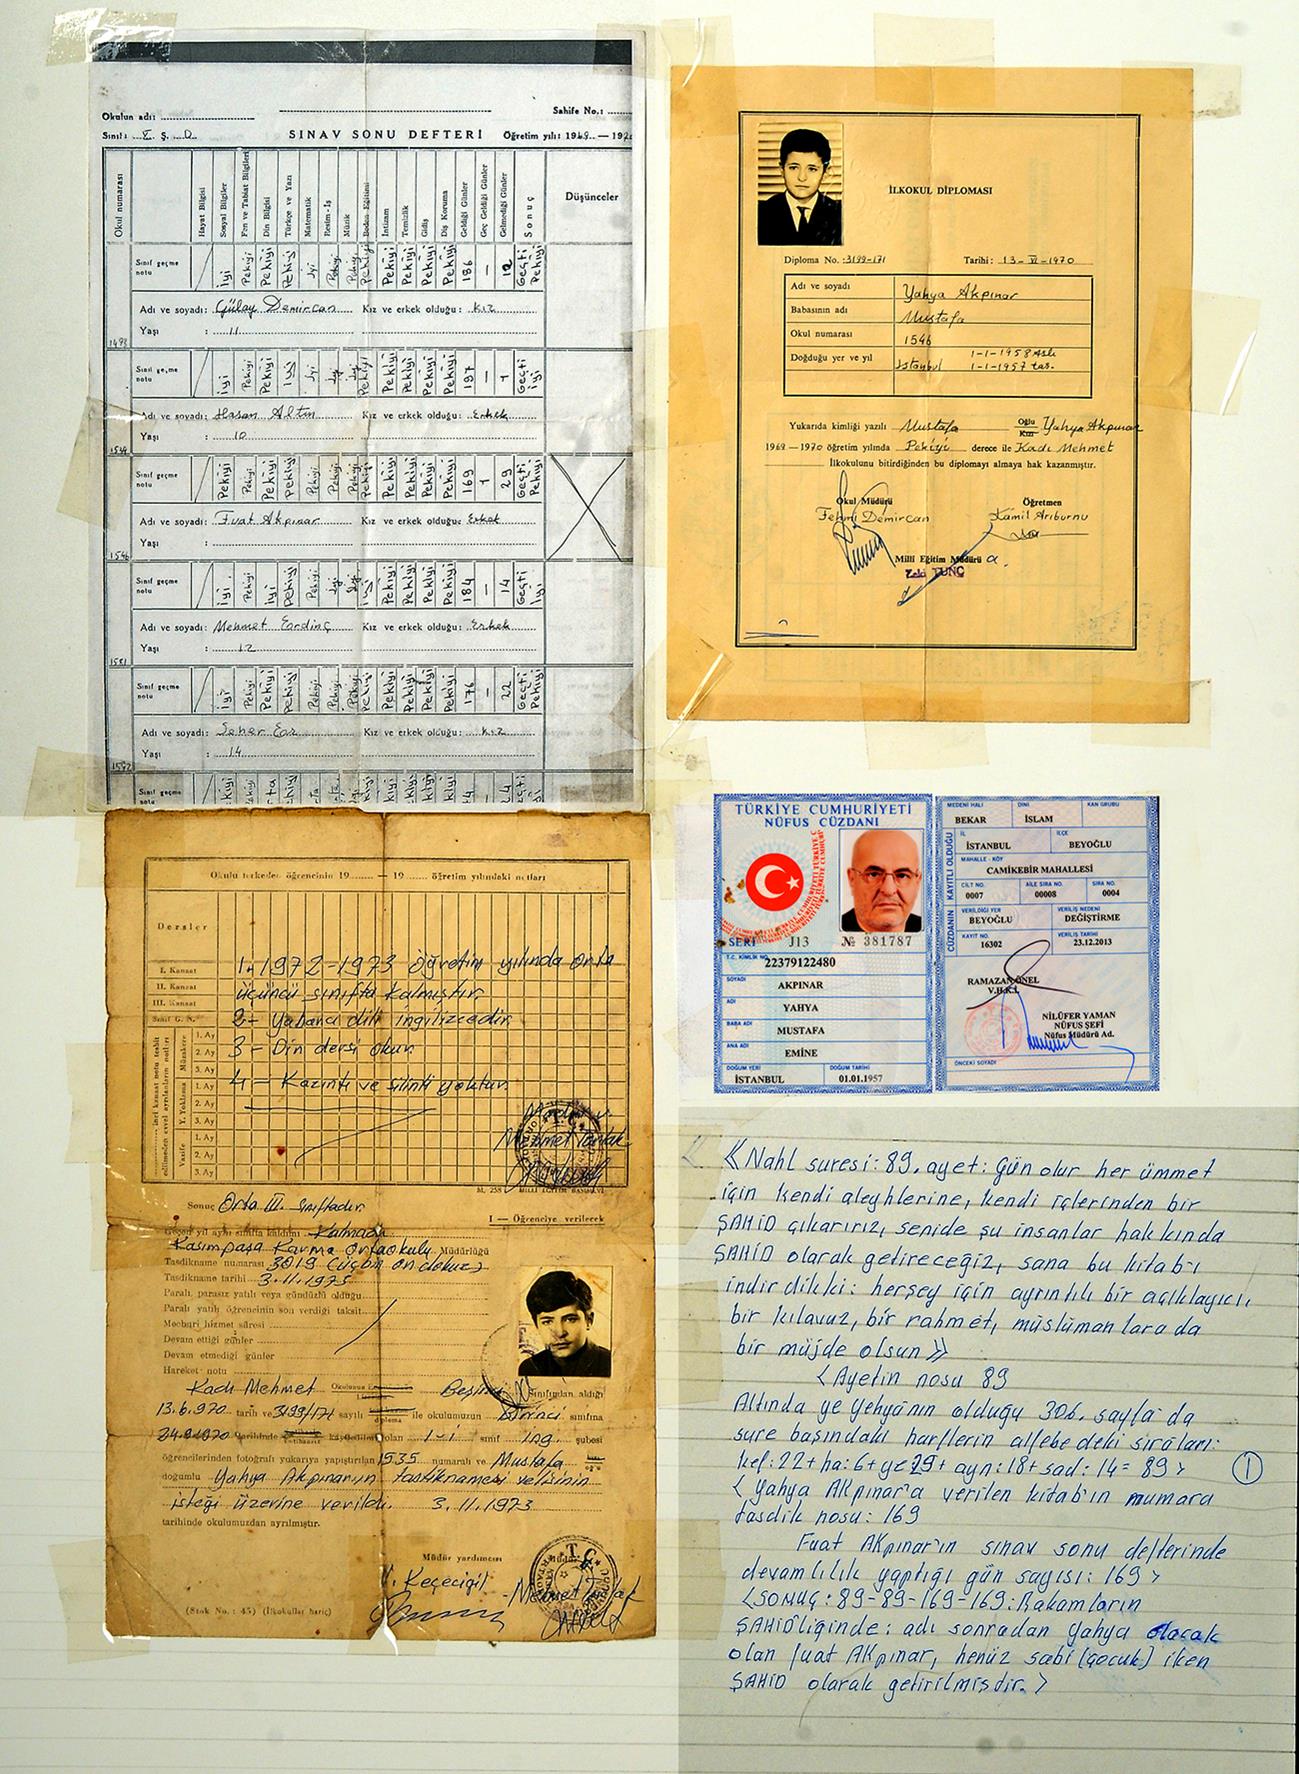 Okulun adı:
Sahife No.:
Sınıf: V Ş. D
SINAV SONU DEFTERİ
Öğretim yılı: 1969 — 197
Okul numarası
Hayat Bilgisi
Sosyal Bilgiler
Fen ve Tabiat Bilgileri
Din Bilgisi
Türkçe ve Yazı
Matematik
Resim - İş
Müzik
Beden Eğitimi
İntizam
Temizlik
Gidiş
Diş Koruma
Geldiği Günler
Geç Geldiği Günler
Gelmediği Günler
Sonuç
Düşünceler
Sınıf geçme notu
İyi Pekiyi Pekiyi Pekiyi İyi Pekiyi Pekiyi Pekiyi Pekiyi Pekiyi Pekiyi Pekiyi 186 — 12 Geçti Pekiyi
Adı ve soyadı: Gülay Demircan Kız ve erkek olduğu: Kız
Yaşı : 11
1498
Sınıf geçme notu
İyi Pekiyi Pekiyi Pekiyi Pekiyi Pekiyi Pekiyi 197 — 1 Geçti İyi
Adı ve soyadı: Hasan Altın Kız ve erkek olduğu: Erkek
Yaşı : 10
Sınıf geçme notu
Pekiyi Pekiyi Pekiyi Pekiyi Pekiyi Pekiyi Pekiyi Pekiyi Pekiyi Pekiyi Pekiyi Pekiyi 169 1 29 Geçti Pekiyi
Adı ve soyadı: Fuat Akpınar Kız ve erkek olduğu: Erkek
Yaşı :
1546
Sınıf geçme notu
İyi Pekiyi İyi Pekiyi Pekiyi Pekiyi Pekiyi Pekiyi Pekiyi 184 — 14 Geçti İyi
Adı ve soyadı: Mehmet Erdinç Kız ve erkek olduğu: Erkek
Yaşı : 12
1581
Sınıf geçme notu
İyi Pekiyi Pekiyi Pekiyi Pekiyi Pekiyi Pekiyi Pekiyi Pekiyi Pekiyi Pekiyi Pekiyi 176 — 22 Geçti Pekiyi
Adı ve soyadı: Seher Kız ve erkek olduğu: Kız
Yaşı : 14
1592
Sınıf geçme notu
İLKOKUL DİPLOMASI
Diploma No.: 3199-171 Tarihi: 13-VI-1970
Adı ve soyadı Yahya Akpınar
Babasının adı Mustafa
Okul numarası 1546
Doğduğu yer ve yıl İstanbul 1-1-1958 Aslı
1-1-1957 tas.
Yukarıda kimliği yazılı Mustafa Oğlu Kızı Yahya Akpınar
1969—1970 öğretim yılında Pekiyi derece ile Kadı Mehmet
İlkokulunu bitirdiğinden bu diplomayı almaya hak kazanmıştır.
Okul Müdürü Öğretmen
Fehmi Demircan Kamil Arıburnu
Millî Eğitim Müdürü a.
Zeki TUNÇ
TÜRKİYE CUMHURİYETİ
NÜFUS CÜZDANI
SERİ J13 № 381787
T.C. KİMLİK NO. 22379122480
SOYADI
AKPINAR
ADI
YAHYA
BABA ADI
MUSTAFA
ANA ADI
EMİNE
DOĞUM YERİ DOĞUM TARİHİ
İSTANBUL 01.01.1957
MEDENİ HALİ DİNİ KAN GRUBU
BEKAR İSLAM
CÜZDANIN KAYITLI OLDUĞU
İL İLÇE
İSTANBUL BEYOĞLU
MAHALLE - KÖY
CAMİKEBİR MAHALLESİ
CİLT NO. AİLE SIRA NO. SIRA NO.
0007 00008 0004
VERİLDİĞİ YER VERİLİŞ NEDENİ
BEYOĞLU DEĞİŞTİRME
KAYIT NO. VERİLİŞ TARİHİ
16302 23.12.2013
RAMAZAN ÖNEL
V.H.K.İ.
NİLÜFER YAMAN
NÜFUS ŞEFİ
Nüfus Müdürü Ad.
ÖNCEKİ SOYADI
Okulu terkeden öğrencinin 19 — 19 öğretim yılındaki notları
Dersler
I. Kanaat
II. Kanaat
III. Kanaat
Sınıf G. N.
Müzakere 1. Ay 2. Ay 3. Ay
Y. Yoklama 1. Ay 2. Ay 3. Ay
Vazife 1. Ay 2. Ay 3. Ay
1. 1972-1973 Öğretim yılında orta
üçüncü sınıfta kalmıştır.
2- Yabancı dili ingilizcedir.
3- Din dersi okur.
4- Kazıntı ve silinti yoktur.
Müdür
Mehmet Parlak
Sonuç Orta III. sınıftadır.
I — Öğrenciye verilecek
Geçen yıl aynı sınıfta kaldımı Kalmadı
Kasımpaşa Karma Ortaokulu Müdürlüğü
Tasdikname numarası 3019 (üçbin on dokuz)
Tasdikname tarihi 3.11.1973
Paralı, parasız yatılı veya gündüzlü olduğu
Paralı yatılı öğrencinin son verdiği taksit
Mecburi hizmet süresi
Devam ettiği günler
Devam etmediği günler
Hareket notu
Kadı Mehmet Okulunun Beşinci Sınıfından aldığı
13.6.970 tarih ve 3199/171 sayılı diploma ile okulumuzun birinci sınıfına
24.9.1970 tarihinde olan 1-i sınıf İng. şubesi
öğrencilerinden fotoğrafı yukarıya yapıştırılan 1535 numaralı ve Mustafa
doğumlu Yahya Akpınar'ın tastiknamesi velisinin
isteği üzerine verildi. 3.11.1973
tarihinde okulumuzdan ayrılmıştır.
Müdür yardımcısı Müdür
Keçecigil Mehmet Parlak
(Stok No.: 45) (İlkokullar hariç)
《Nahl suresi: 89. ayet: Gün olur her ümmet
için kendi aleyhlerine, kendi içlerinden bir
ŞAHİD çıkarırız, senide şu insanlar hakkında
ŞAHİD olarak getireceğiz, sana bu kitab-ı
indirdikki: herşey için ayrıntılı bir açıklayıcı,
bir kılavuz, bir rahmet, müslümanlara da
bir müjde olsun》
<Ayetin nosu 89
Altında ye yehya'nın olduğu 306. sayfa'da
sure başındaki harflerin alfebedeki sıraları:
kef: 22+ha: 6+ye 29+ ayn: 18+ sad: 14= 89>
<Yahya AKpınar'a verilen kitab'ın numara
tasdik nosu: 169
Fuat AKpınar'ın sınav sonu defterinde
devamlılık yaptığı gün sayısı: 169>
<SONUÇ: 89-89-169-169: Rakamların
ŞAHİD'liğinde: adı sonradan yahya olacak
olan fuat AKpınar, henüz sabi (çocuk) iken
ŞAHİD olarak getirilmişdir.>
1